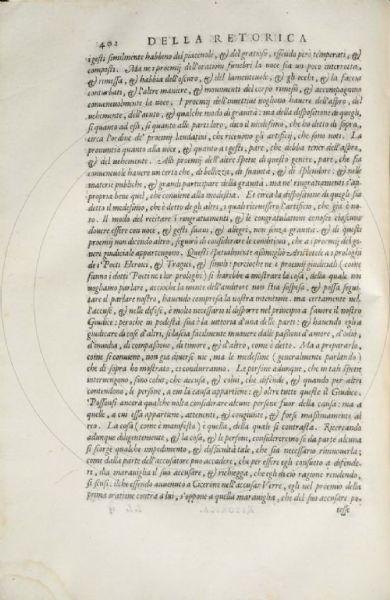 402 DELLA RETORICA
i gesti similmente habbino del piaceuole, & del gratioso, essendo però temperati, &
composti. Ma ne' proemij dell'orationi funebri la voce sia un poco interrotta,
& remessa, & habbia dell'oscuro, & del lamenteuole, & gli occhi, & la faccia
conturbati, & l'altre maniere, & mouimenti del corpo rimessi, & accompagnino
conueneuolmente la voce. I proemij dell'inuettiue vogliono hauere dell'aspro, del
vehemente, dell'acuto, & qualche modo di grauità: ma della dispositione di quegli,
si quanto ad essi, si quanto alle parti loro, dico il medesimo, che ho detto di sopra,
circa l'ordine de' proemij laudatiui, che riceuono gli artificij, che sono noti. La
pronuntia quanto alla voce, & quanto a i gesti, pare, che debba tener dell'aspro,
& del vehemente. Allo proemij dell'altre spetie di questo genere, pare, che sia
conueneuole hauere un certo che, di bellezza, di suauità, & di splendore: & nelle
materie publiche, & grandi participare della grauità. ma ne' ringratiamenti s'ap-
propria bene quel, che conuiene alla modestia. Et circa la dispositione di quegli sia
detto il medesimo, che è detto de gli altri; quali riceuessero l'artificio, che già è no-
to. Il modo del recitare i ringratiamenti, & le congratulationi
douere essere con voce, & gesti suaui, & alegri, non senza grauità. & di questi
proemij non dicendo altro, seguirò di considerare le conditioni, che a i proemij del ge-
nere giudiciale appartengono. Questi spetialmente assimigliò Aristotele a i prologhi
de i Poeti Heroici, & Tragici, & simili: percioche ne i proemij giudiciali (come
fanno i detti Poeti ne lor prologhi) si harebbe a mostrare la cosa, della quale noi
vogliamo parlare, accioche la mente dell'auditore non stia sospesa, & possa segui-
tare il parlare nostro, hauendo compresa la nostra intentione. ma certamente nel-
l'accuse, & nelle difese, è molto necessario il disporre nel principio a fauore il nostro
Giudice: peroche in podestà sua è la vittoria d'una delle parti: & hauendo egli a
giudicare di cose d'altri, si lascia facilmente muouere dalle passioni d'amore, d'odio,
d'inuidia, di compassione, di timore, & d'altro, come è detto. Ma a prepararlo,
come si conuiene, non già diuerse vie, ma le medesime (generalmente parlando)
che di sopra ho mostrato, ci condurranno. Le persone adunque, che in tali spetie
interuengono, sono colui, che accusa, & colui, che difende, & quando per altri
contendono, le persone, a cui la causa appartiene; & oltre tutte queste il Giudice.
Possonsi ancora qualche volta considerare alcune persone fuor della causa: ma a
quelle, a cui essa appartiene, attenenti, & congiunte, & forse massimamente al
reo. La cosa (come è manifesto) è quella, della quale si contrasta. Ricercando
adunque diligentemente, & la cosa, & le persone, consideraremo se da parte alcuna
si scorge qualche impedimento, & difficultà tale, che sia necessario rimuouerla;
come dalla parte dell'accusatore può accadere, che per essere egli consueto a difende-
re, dia marauiglia il suo accusare, & richiegga, che egli di ciò ragione rendendo,
si scusi. ilche essendo auuenuto a Cicerone nell'accusar Verre, egli nel proemio della
prima oratione contra a lui, s'oppone a quella marauiglia, che del suo accusare po-
tesse